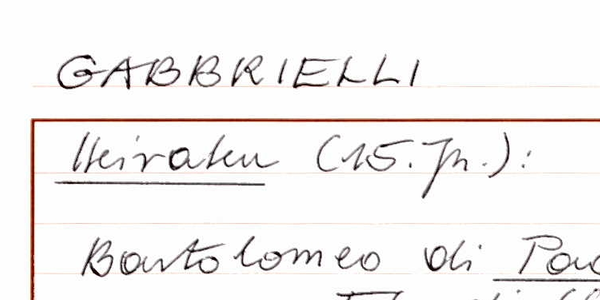 GABBRIELLI
Heiraten (15. Jh.):
Bartolomeo di